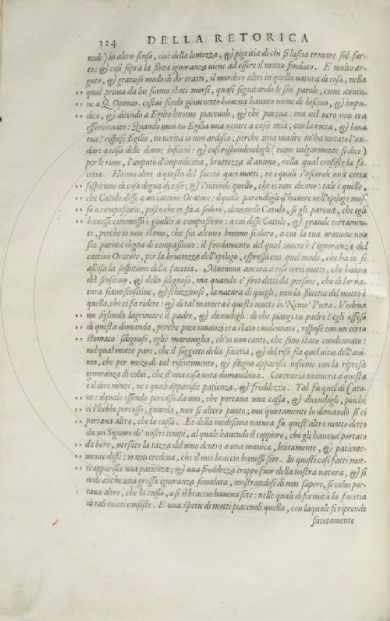 324 DELLA RETORICA
nede) in altro senso, cioè della lentezza, & pigritia di chi si lascia trouare sul fur-
to: & così sopra la finta ignoranza viene ad essere il motto fondato. E molto ar-
guto, & gratioso modo di dir tratti, il mordere altri in quella natura di cosa, nella
qual prima da lui siamo stati morsi, quasi seguitando le sue parole, come auuen-
ne a Q. Opimio. costui sendo giouenetto haueua hauuto nome di lasciuo, & impu-
dico, & dicendo a Egilio huomo piaceuole, & che pareua molle, ma
essenominato: Quando vieni tu Egilia mia a casa mia, con la rocca, & la
na: rispose Egilio, in verità io non ardisco; perche mia madre m'ha vietato l'an-
dare a casa delle donne infami: & così rispondendogli (come volgarmente si dice)
per le rime, l'imputò d'impudicitia, bruttezza d'animo, nella qual consiste la fa-
cetia. Hanno oltre a questo del faceto quei motti, ne i quali s'asconde vna certa
sospitione di cosa degna di riso; & s'intende quello, che ei non dicono: tale è quello,
che Catulo disse a vn cattiuo Oratore: ilquale parendogli d'hauere nell'epilogo mos-
so a compassione, posto che si fu a sedere, dimandò Catulo, se gli pareua, che egli
hauesse commossi i giudici a compassione: a cui disse Catulo, & grande certamen-
te, perche io non stimo, che sia alcuno huomo sì duro, a cui la tua oratione non
sia paruta degna di compassione: il fondamento del qual motto è l'ignoranza del
cattiuo Oratore, per la bruttezza dell'epilogo, espressa con quel modo, che ha in se
ascosa la sospitione della facetia. Muouono ancora a riso certi motti, che hanno
del sensitiuo, & dello sdegnoso, ma quando e' sono detti da persone, che di lor na-
tura siano sensitiue, & schizzinose, la natura di quegli, non la facetia del motto è
quella, che ci fa ridere: & di tal maniera è questo motto in Neuio Poeta. Vedeua
vn figliuolo lagrimare il padre, & dicendogli: di che piangi tu padre?
di questa domanda, perche poco innanzi era stato condennato, rispose con vn certo
stomaco sdegnoso, egli marauiglia, ch'io non canti, che sono stato condennato:
nel qual motto pare, che il soggetto della facetia, & del riso sia quel vitio dell'ani-
mo, che per mezo di tal risentimento, & sdegno apparisce insieme con la ripresa
ignoranza di colui, che d'vna cosa nota domandaua. Contraria maniera a questa
è il dire motti, ne i quali apparisce patienza, & freddezza. Tal fu quel di Cato-
ne: ilquale essendo percosso da vno, che portaua vna cassa, & dicendogli, poiche
ei l'hebbe percosso, guarda, non si alterò punto; ma quietamente lo domandò se ei
portaua altro, che la cassa. Et della medesima natura fu quest'altro motto detto
da vn Signore de' nostri tempi, al quale hauendo il coppiero, che gli haueua portato
da bere, versato la tazza del vino dentro a vna manica, lentamente, & patiente-
mente disse: io non credeua, che il mio braccio hauesse sete. In questi così fatti mot-
ti apparisce vna patienza, & vna freddezza troppo fuor della nostra natura, & si
vede anche vna grossa ignoranza simulata, mostrandosi di non sapere, se colui por-
taua altro, che la cassa, o se il braccio haueua sete: nelle quali deformità la facetia
di tali motti consiste. E vna spetie di motti piaceuoli quella, con laquale si riprende
facetamente